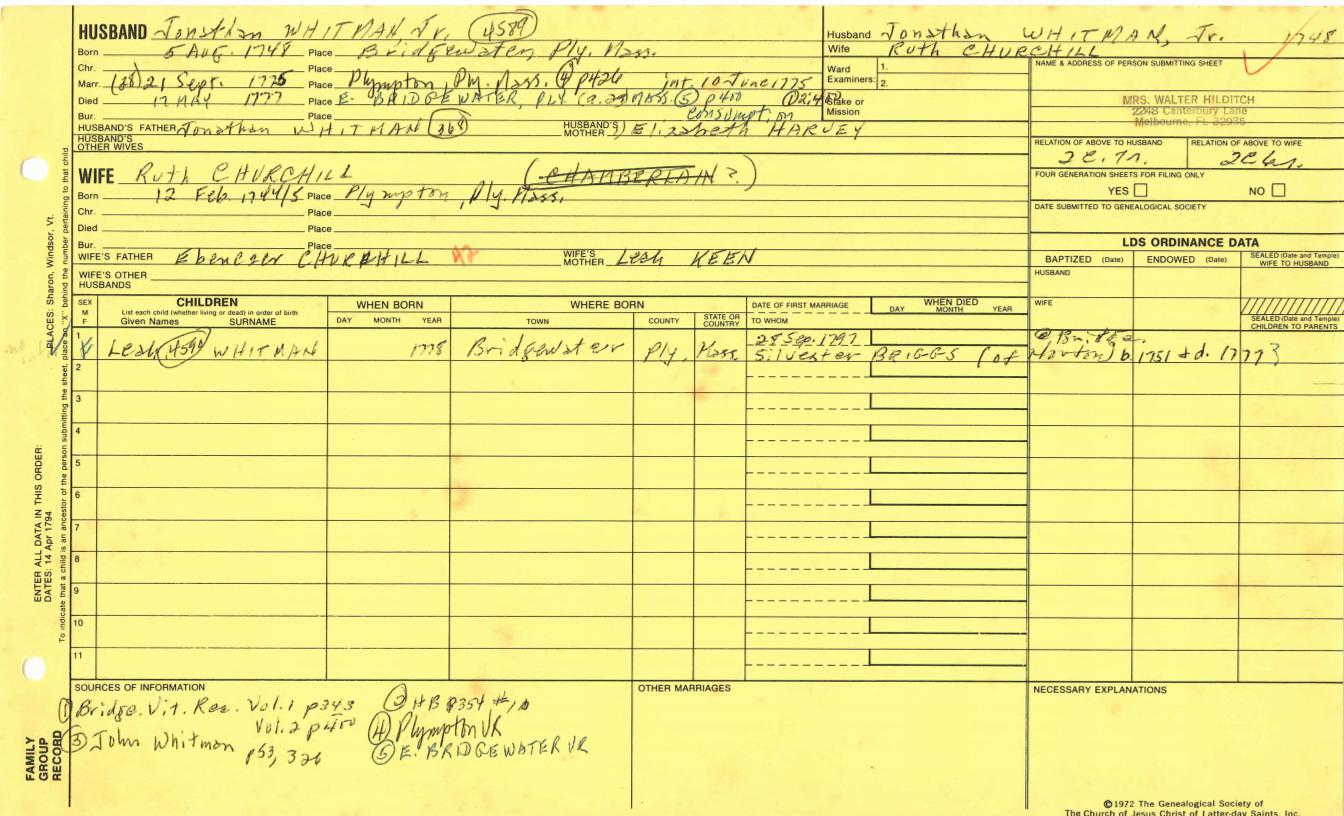 HUSBAND Jonathan WHITMAN Jr. 4589
Born 5 AUG. 1748 Place Bridgewater, Ply. Mass.
Chr. Place
Marr. (28) 21 Sept. 1775 Place Plympton, Ply. Mass. ④ p426 int. 10 June 1775
Died 17 MAY 1777 Place E. BRIDGEWATER, PLY MASS. ⑤ p400
Bur. Place consumption
HUSBAND'S FATHER Jonathan WHITMAN 368 HUSBAND'S MOTHER 1) Elizabeth HARVEY
HUSBAND'S OTHER WIVES
WIFE Ruth CHURCHILL (CHAMBERLAIN ?)
Born 12 Feb. 1744/5 Place Plympton, Ply. Mass.
Chr. Place
Died Place
Bur. Place
WIFE'S FATHER Ebenezer CHURCHILL WIFE'S MOTHER Leah KEEN
WIFE'S OTHER HUSBANDS
Husband Jonathan WHITMAN, Jr. 1748
Wife Ruth CHURCHILL
Ward Examiners: 1. 2.
Stake or Mission
NAME & ADDRESS OF PERSON SUBMITTING SHEET
MRS. WALTER HILDITCH
2248 Canterbury Lane
Melbourne, FL 32935
RELATION OF ABOVE TO HUSBAND RELATION OF ABOVE TO WIFE
FOUR GENERATION SHEETS FOR FILING ONLY
YES NO
DATE SUBMITTED TO GENEALOGICAL SOCIETY
LDS ORDINANCE DATA
BAPTIZED (Date) ENDOWED (Date) SEALED (Date and Temple) WIFE TO HUSBAND
HUSBAND
WIFE
SEALED (Date and Temple) CHILDREN TO PARENTS
SEX M F CHILDREN List each child (whether living or dead) in order of birth Given Names SURNAME WHEN BORN DAY MONTH YEAR WHERE BORN TOWN COUNTY STATE OR COUNTRY DATE OF FIRST MARRIAGE TO WHOM WHEN DIED DAY MONTH YEAR
1 Leah 4590 WHITMAN 1778 Bridgewater Ply. Mass. 28 Sep. 1797
Silvester BRIGGS (of Norton) b 1751 & d. 1777 ?
2
3
4
5
6
7
8
9
10
11
SOURCES OF INFORMATION
① Bridge. Vit. Rec. Vol. 1 p343
Vol. 2 p400
③ John Whitman p53, 326
② HB p354
④ Plympton VR
⑤ E. BRIDGEWATER VR
OTHER MARRIAGES
NECESSARY EXPLANATIONS
©1972 The Genealogical Society of
The Church of Jesus Christ of Latter-day Saints, Inc.
FAMILY GROUP RECORD
ENTER ALL DATA IN THIS ORDER:
DATES: 14 Apr 1794
PLACES: Sharon, Windsor, Vt.
To indicate that a child is an ancestor of the person submitting the sheet, place an "X" behind the number pertaining to that child.